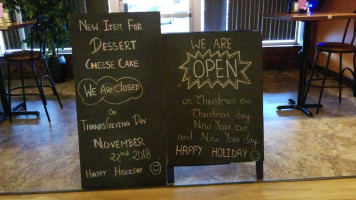 New Item For
Dessert
Cheese Cake
We Are Closed
On
Thanksgiving Day
November
22nd 2018
Happy Holiday
WE ARE
OPEN
on Christmas eve
Christmas day
New Year eve
and New Year day
HAPPY HOLIDAY